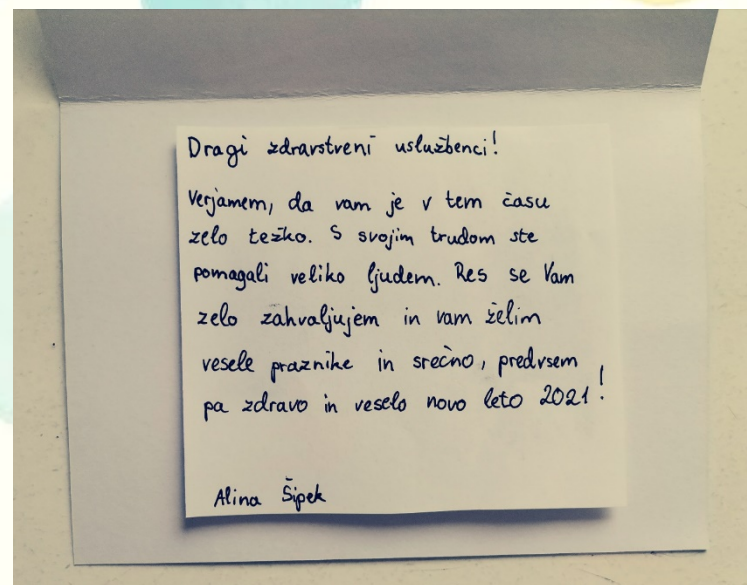 Dragi zdravstveni uslužbenci!
Verjamem, da vam je v tem času
zelo težko. S svojim trudom ste
pomagali veliko ljudem. Res se Vam
zelo zahvaljujem in vam želim
vesele praznike in srečno, predvsem
pa zdravo in veselo novo leto 2021!
Alina Šipek